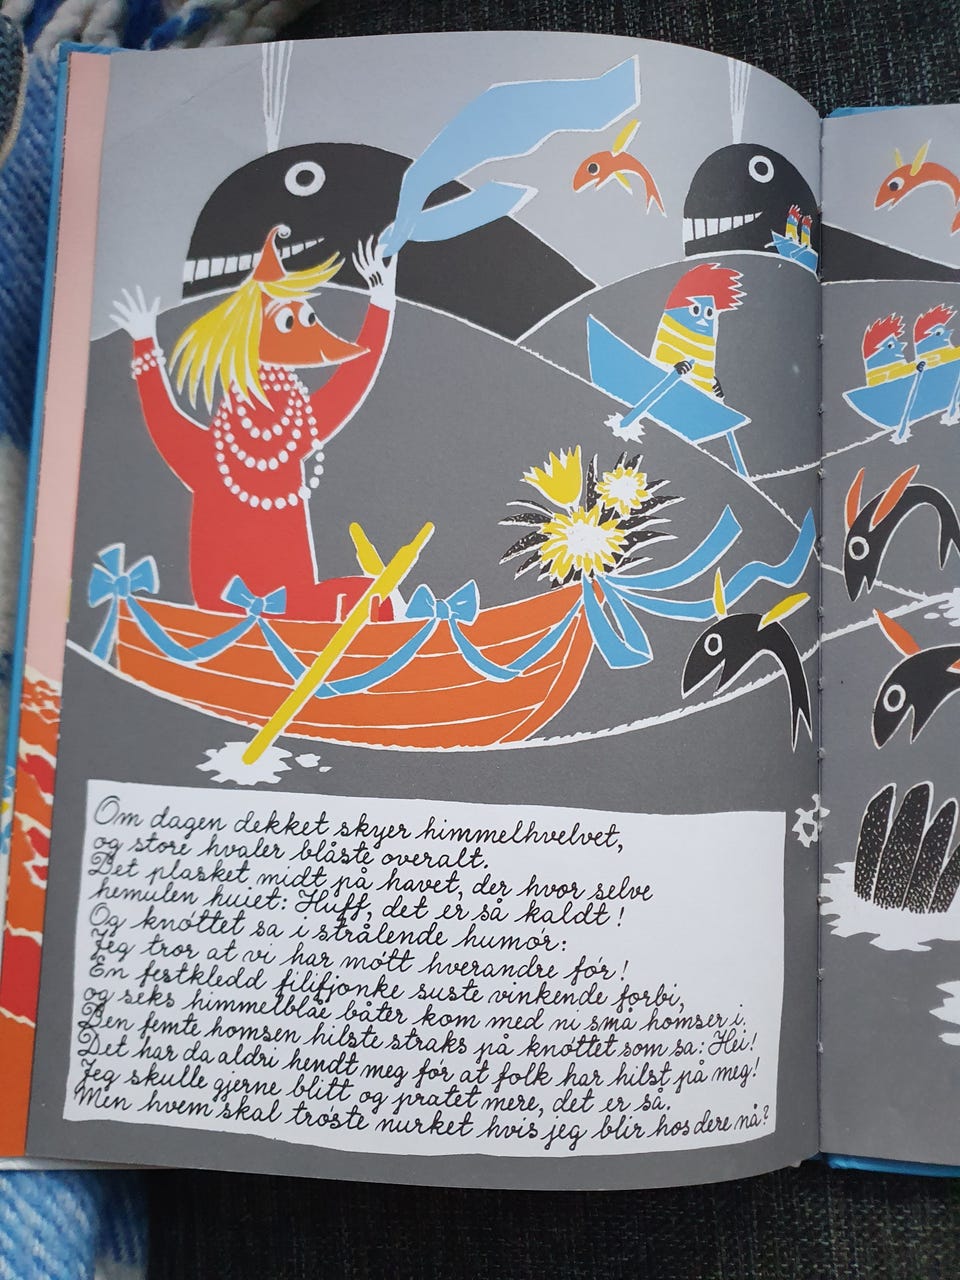 Om dagen dekket skyer himmelhvelvet,
og store hvaler blåste overalt.
Det plasket midt på havet, der hvor selve
hemulen huiet: Huff, det er så kaldt!
Og knøttet sa i strålende humør:
Jeg tror at vi har møtt hverandre før!
En festkledd filifjonke suste vinkende forbi,
og seks himmelblåe båter kom med ni små homser i.
Den femte homsen hilste straks på knøttet som sa: Hei!
Det har da aldri hendt meg før at folk har hilst på meg!
Jeg skulle gjerne blitt og pratet mere, det er så.
Men hvem skal trøste nurket hvis jeg blir hos dere nå?